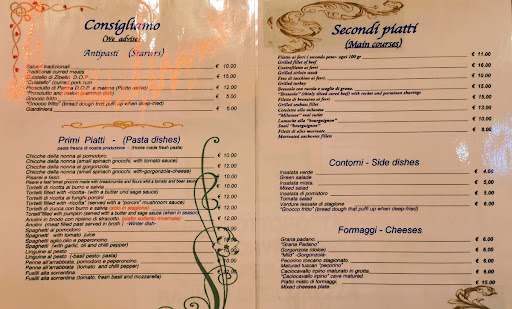 Consigliamo
(We advise)
Antipasti (Starters)
Salumi tradizionali € 10.00
Traditional cured meats
Culatello di Zibello D.O.P. € 15.00
"Culatello" cured pork rum
Prosciutto di Parma D.O.P. e melone (Piatto estivo) € 12.00
"Prosciutto and melon (summer dish) € 5.00
Gnocco fritto
"Gnocco fritto" (bread dough that puff up when deep-fried)
Giardiniera € 5.00
Primi Piatti - (Pasta dishes)
pasta fresca di nostra produzione - (Home made fresh pasta)
Chicche della nonna al pomodoro € 10.00
Chicche della nonna (small spinach gnocchi, with tomato sauce)
Chicche della nonna al gorgonzola
Chicche della nonna (small spinach gnocchi, with-gorgonzola-cheese)
Pisarei e fasò
Tortelli di ricotta al burro e salvia
Tortelli filled with -ricotta- (with a butter and sage sauce)
Tortelli di ricotta ai funghi porcini
Tortelli filled with -ricotta- (served with a "porcini" mushroom sauce)
Tortelli di zucca con burro e salvia
Tortelli filled with pumpkin (served with a butter and sage sauce) (when in season)
Anolini in brodo con ripieno di stracotto (piatto soltanto invernale)
Anolini (meat filled past served in broth) -Winter dish-
Spaghetti al pomodoro
Spaghetti with tomato juice
Spaghetti aglio,olio e peperoncino
Spaghetti (with garlic, oil and chilli pepper)
Linguine al pesto
Linguine al pesto (-basil pesto- pasta)
Penne all'arrabbiata, pomodoro e peperoncino
Penne all'arrabbiata (tomato and chilli pepper)
Fusilli alla sorrentina
Fusilli alla sorrentina (tomato, fresh basil and mozzarella)
Secondi piatti
(Main courses)
Filetto ai ferri ( secondo peso- ogni 100 gr € 11.00
Grilled fillet of beef
Controfiletto ai ferri
Grilled sirloin steak
Fesa di tacchino ai ferri
Grilled turkey
Bresaola con rucola e scaglie di grana
"Bresaola" (thinly sliced cured beef) with rocket and parmesan shavings
Filetto di branzino ai ferri
Grilled seabass fillet
Cotoletta alla milanese
"Milanese" veal cutlet
Lumache alla "bourguignon"
Snail "bourguignon"
Filetti di alici marinate
Marinated anchovies fillets
Contorni - Side dishes
Insalata verde € 4.00
Green salade
Insalata mista € 5.00
Mixed salad
Insalata di pomodoro € 5.00
Tomato salad
Verdure lessate di stagione € 6.00
"Gnocco fritto" (bread dough that puff up when deep-fried)
Formaggi - Cheeses
Grana padano € 6.00
"Grana Padano"
Gorgonzola (dolce) € 6.00
"Mild" -Gorgonzola-
Pecorino toscano stagionato. € 6.00
Matured tuscan "pecorino"
Caciocavallo irpino maturato in grotta € 6.00
"Caciocavallo irpino" cave matured
Piatto misto di formaggi € 15.00
Mixed cheeses plate